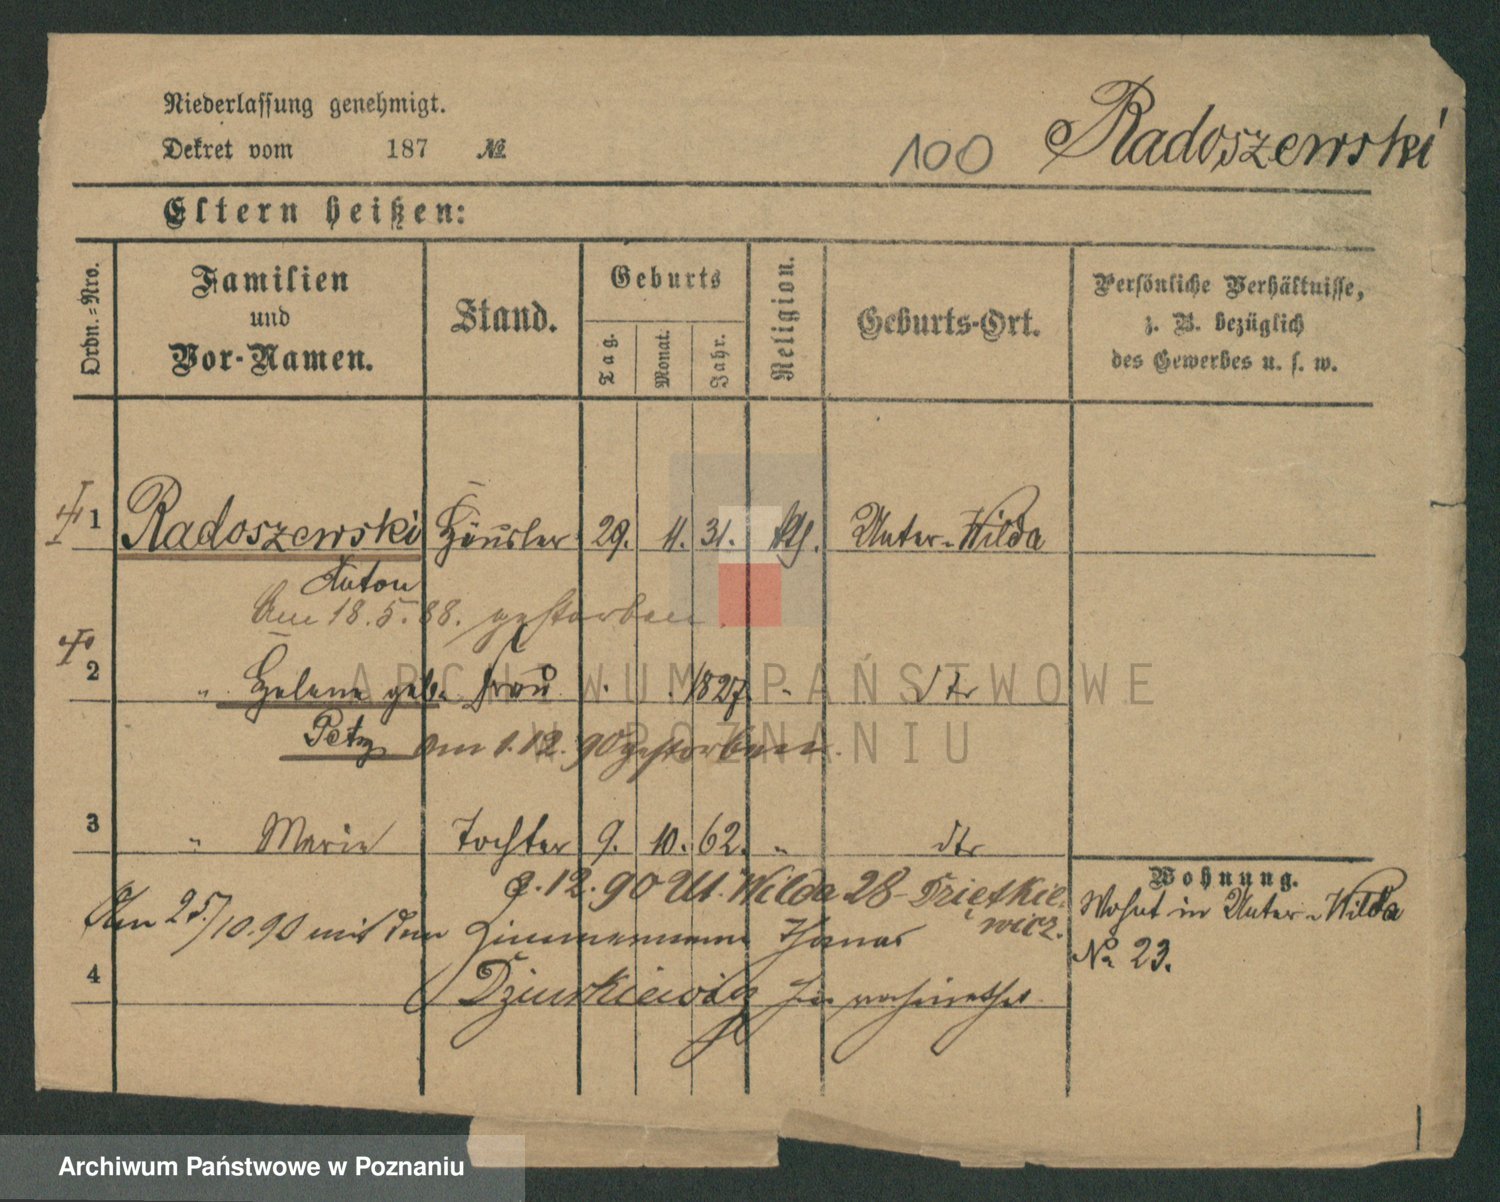 Niederlassung genehmigt.
Dekret vom 187 №
100 Radoszewski
Eltern heißen:
Ordn.-Nro.
Familien und Vor-Namen.
Stand.
Geburts
Tag.
Monat.
Jahr.
Religion.
Geburts-Ort.
Persönliche Verhältnisse,
z. B. bezüglich
des Gewerbes u. s. w.
1 Radoszewski Häusler 29. 11. 31. kth. Unter-Wilda
Anton
Am 18.5.88. gestorben.
2 " Helene geb. Frau . . 1827. " dto
Petz am 1.12.90 gestorben.
3 " Marie Tochter 9. 10. 62. " dto
2.12.90 Ut. Wilda 28
Wohnung.
Am 25/10.90 mit dem Zimmermann Thomas
wicz.
Wohnt in Unter-Wilda
№ 23.
4
ARCHIWUM PAŃSTWOWE
W POZNANIU
Archiwum Państwowe w Poznaniu